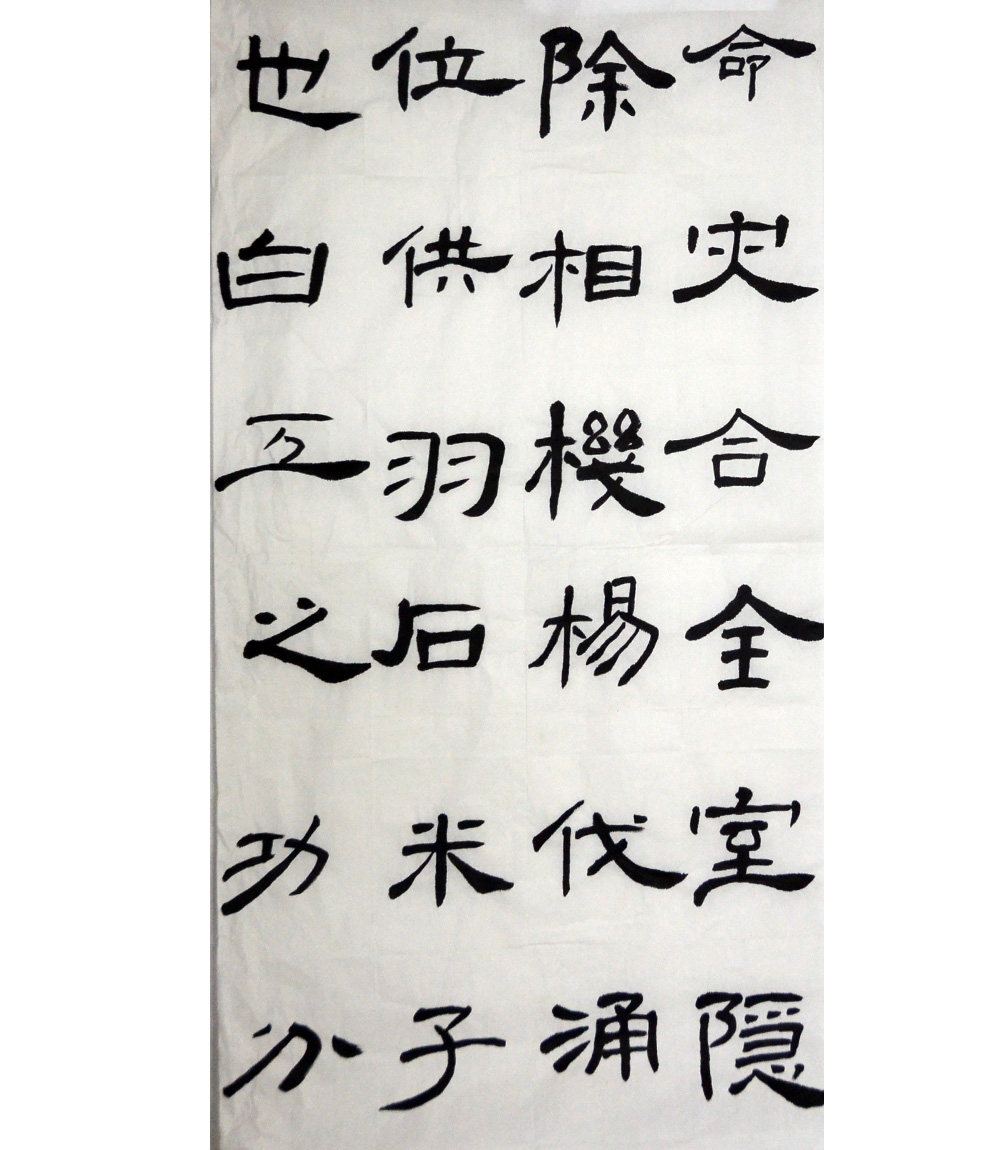 命灾合全室隐
除相機楊伐涌
位供羽石米子
也白互之功分